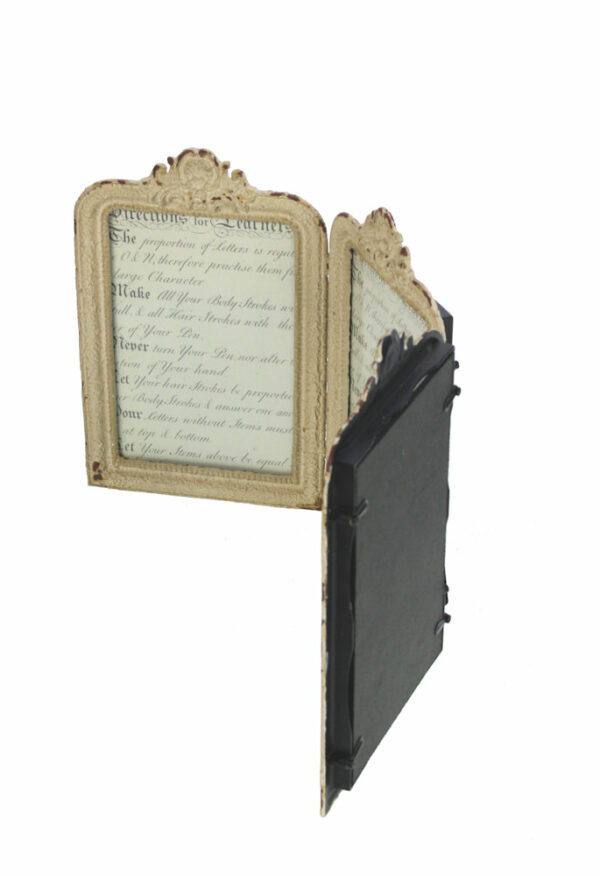 Directions for Learners
The proportion of Letters is regu
O & N, therefore practise them f
large Character.
Make All Your Body Strokes w
ull, & all Hair Strokes with the
of Your Pen.
Never turn Your Pen, nor alter
tion of Your hand.
Let Your hair Strokes be proportio
Body Strokes & answer one an
Your Letters without Stems must
at top & bottom.
Let Your Stems above be equal
The